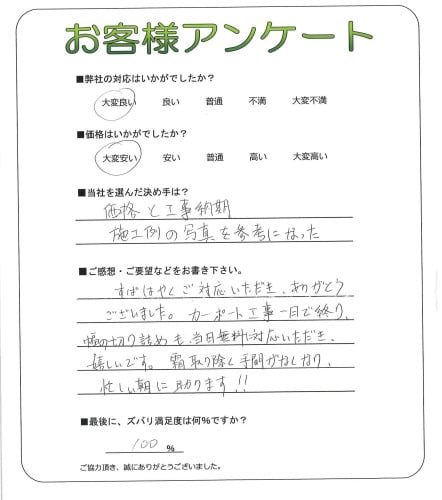 お客様アンケート
■弊社の対応はいかがでしたか?
大変良い 良い 普通 不満 大変不満
■価格はいかがでしたか?
大変安い 安い 普通 高い 大変高い
■当社を選んだ決め手は?
価格と工事納期
施工例の写真を参考になった
■ご感想・ご要望などをお書き下さい。
すばはやくご対応いただき、ありがとう
ございました。カーポート工事一日で終り、
幅の切り詰めも、当日無料に対応いただき、
嬉しいです。霜取り除く手間がなくなり、
忙しい朝に助ります!!
■最後に、ズバリ満足度は何%ですか?
100 %
ご協力頂き、誠にありがとうございました。